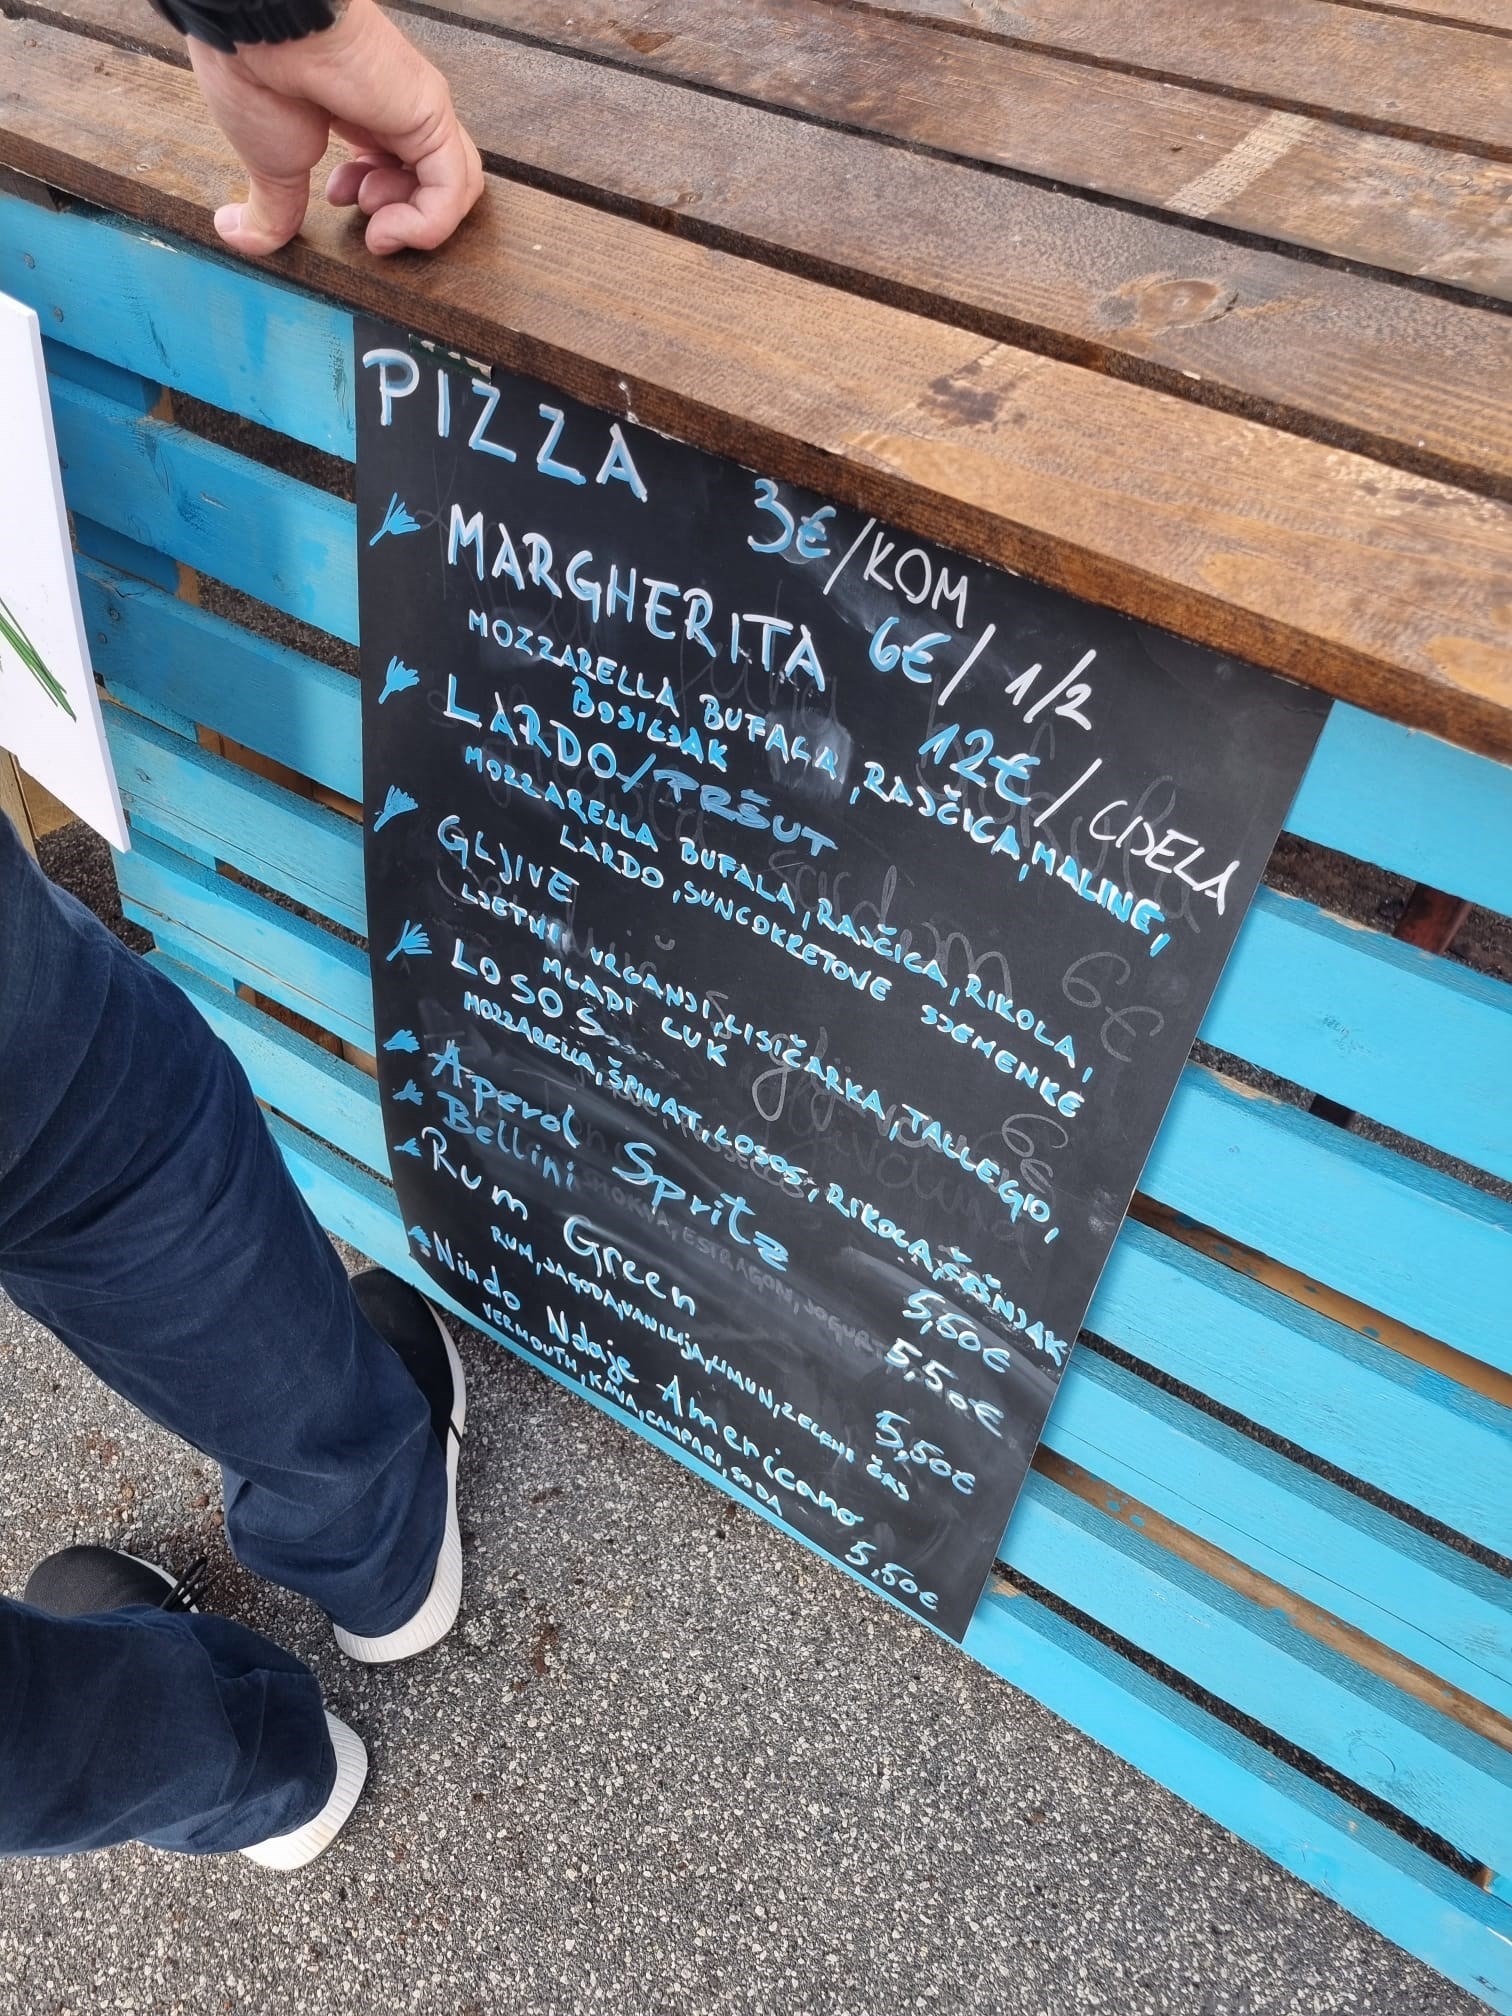 PIZZA 3€/KOM 6€/ 1/2 12€/ CIJELA
MARGHERITA
MOZZARELLA BUFALA, RAJČICA, MALINE,
BOSILJAK
LARDO/PRŠUT
MOZZARELLA BUFALA, RAJČICA, RIKOLA,
LARDO, SUNCOKRETOVE SJEMENKE
GLJIVE
LJETNI VRGANJI, LISIČARKA, TALLEGIO,
MLADI LUK
LOSOS
MOZZARELLA, ŠPINAT, LOSOS, RIKOLA, ČEŠNJAK
Aperol Spritz 5,50€
Bellini 5,50€
Rum Green 5,50€
RUM, JAGODA, VANILIJA, LIMUN, ZELENI ČAJ
Nindo Ndaje Americano 5,50€
VERMOUTH, KAVA, CAMPARI, SODA